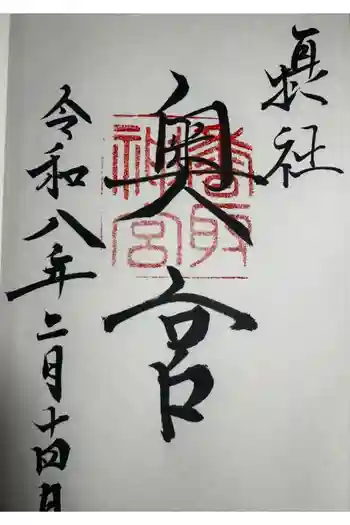 社
奥宮
香取神宮
令和八年二月十四日